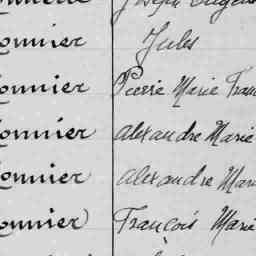 onnier Jules
onnier Pierre Marie Fran
onnier Alexandre Marie
onnier Alexandre Mar
onnier François Marie